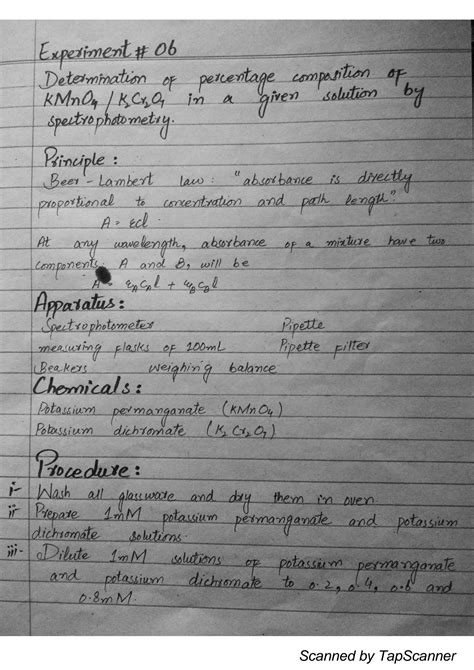 Experiment # 06
Determination of percentage composition of
KMnO4 / K2Cr2O7 in a given solution by
spectrophotometry.
Principle :
Beer - Lambert law : "absorbance is directly
proportional to concentration and path length"
A = εcl
At any wavelength, absorbance of a mixture have two
components A and B, will be
A = εACAl + εBCBl
Apparatus :
Spectrophotometer Pipette
measuring flasks of 100mL Pipette filter
Beakers weighing balance
Chemicals :
Potassium permanganate (KMnO4)
Potassium dichromate (K2Cr2O7)
Procedure :
i- Wash all glassware and dry them in oven
ii- Prepare 1mM potassium permanganate and potassium
dichromate solutions.
iii- Dilute 1mM solutions of potassium permanganate
and potassium dichromate to 0.2, 0.4, 0.6 and
0.8mM.
Scanned by TapScanner